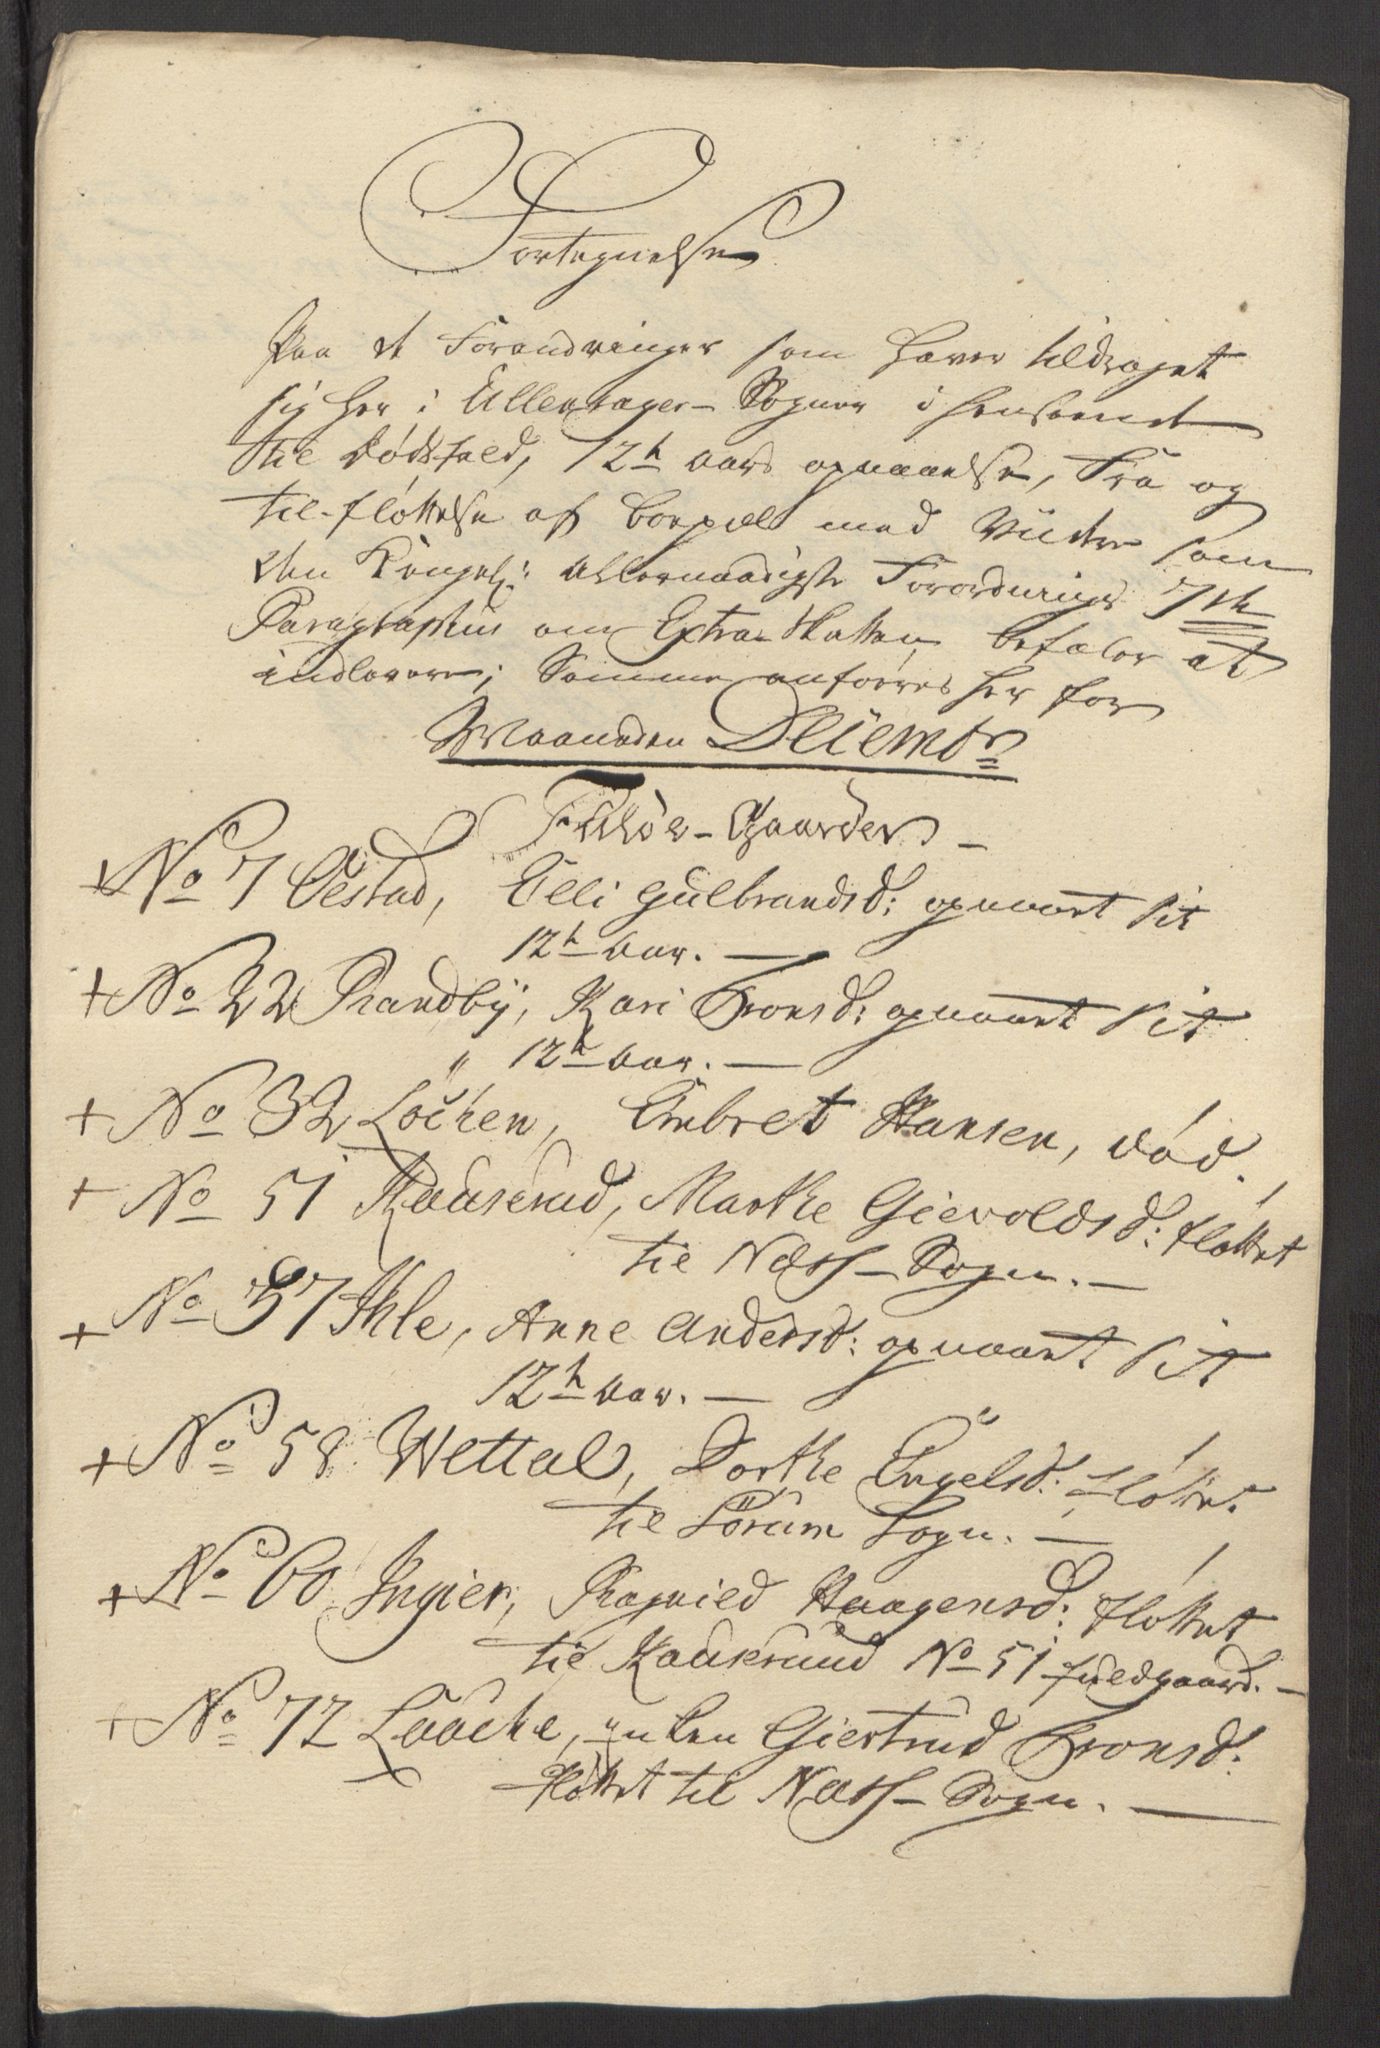 Fortegnelse
Paa de Forandringer som haver tildraget
sig her i Ullensager Sogner i henseende
til Dødsfald, 12te aars opnaaelse, Fra og
til-fløttelse af Boepæl med Viidere som
den Kongel: Allernaadigste Forordnings 7de
Paragraphus om Extra Skatten befaler at
indlevere; Samme anføeres her for
Maaneden Decembr
Fulde-Gaarder
+ No 7 Østad, Elli Gulbrandsd: opnaaet sit
12te Aar.
+ No 22 Randby, Kari Tronsd: opnaaet sit
" 12te Aar.
+ No 32 Løchen, Embret Hansen, død.
+ No 51 Kauserud, Marthe Gievoldsd: fløttet
til Næss-Sogn.
+ No 57 Ihle, Anne Andersd: opnaaet sit
12te Aar.
+ No 58 Wettal, Dorthe Engelsd: fløttet
til Sørum Sogn.
+ No 60 Ingier, Ragnild Haagensd: fløttet
til Kauserud No 51 fuldgaard.
+ No 72 Laache, Enken Giertrud Tronsd:
fløttet til Næss-Sogn.